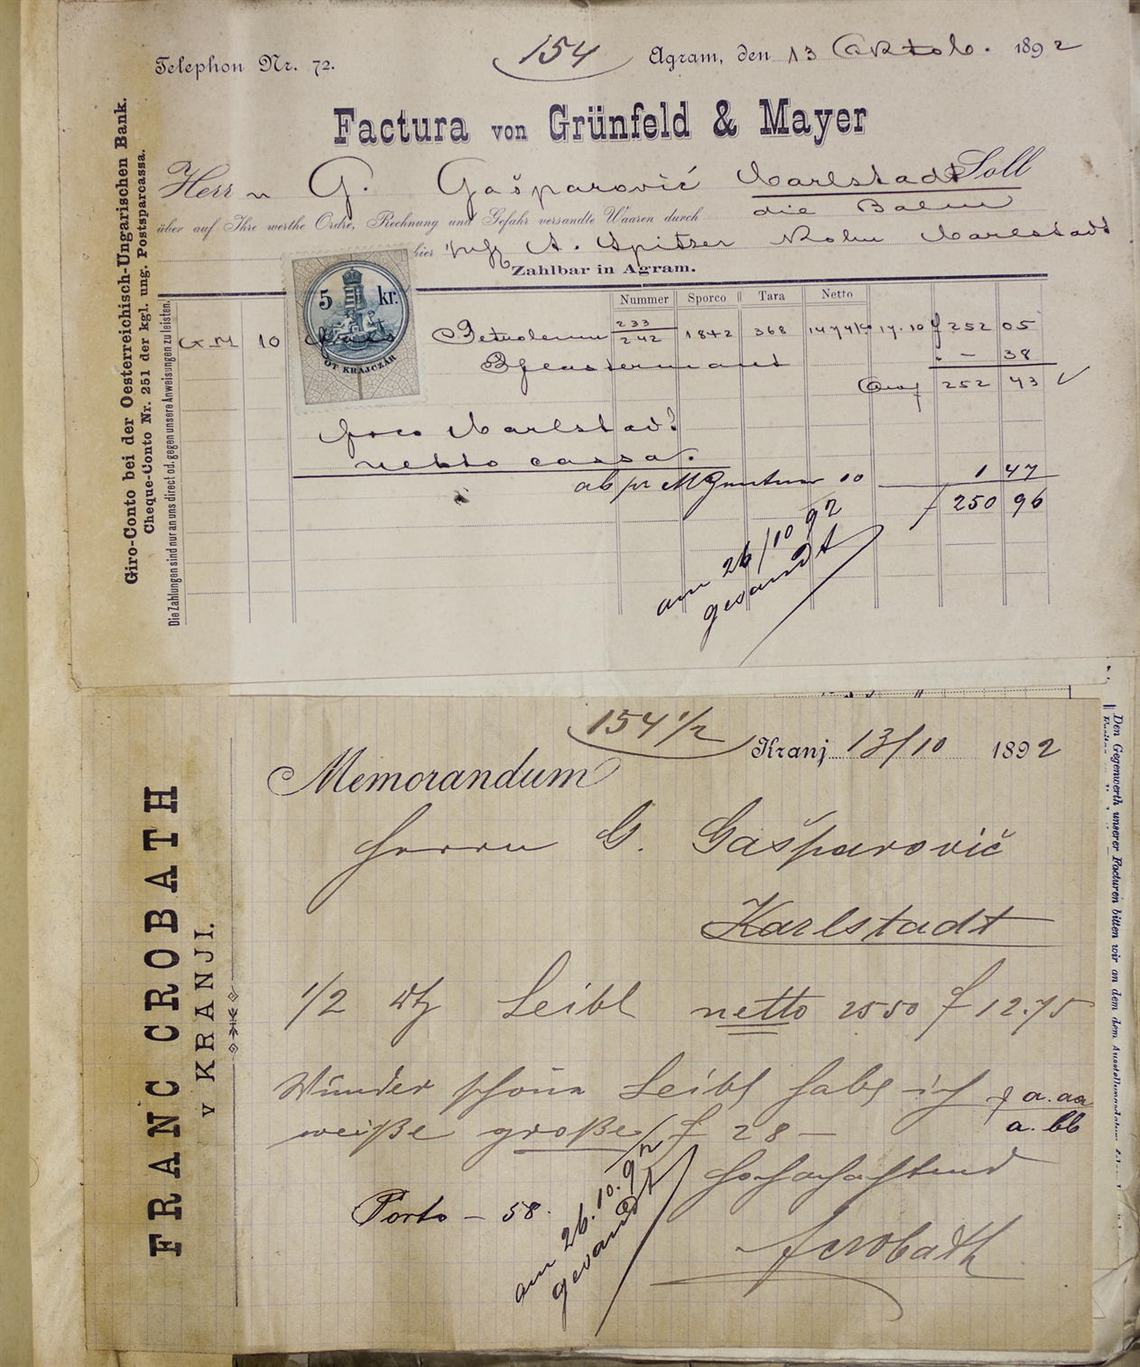 154
Telephon Nr. 72.
Agram, den 13 Oktob. 1892
Factura von Grünfeld & Mayer
Herrn G. Gašparović Carlstadt Soll
über auf Ihre werthe Ordre, Rechnung und Gefahr versandte Waaren durch die Bahn
hier A. Spitzer Kohn Carlstadt
Zahlbar in Agram.
Giro-Conto bei der Oesterreichisch-Ungarischen Bank.
Cheque-Conto Nr. 251 der kgl. ung. Postsparcassa.
Die Zahlungen sind nur an uns direct od. gegen unsere Anweisungen zu leisten.
Nummer Sporco Tara Netto
5 kr.
OT KRAJCZÁR
G.M. 10 Petroleum 233 242 1842 368 1474 17.10 f 252 05
" — 38
252 43
foco Carlstadt
netto cassa.
ab pr 10 1 47
f 250 96
am 26/10 92
gesandt
154 1/2
Kranj 13/10 1892
Memorandum
Herrn G. Gašparovič
Karlstadt
FRANC CROBATH
v KRANJI.
1/2 Leibl netto 2550 f 12.75
Wunder schöne Leibl habe ich f a.aa
weiße große f 28 — a.bb
Hochachtend
Porto — 58.
am 26.10.92
gesandt
Crobath
Den Gegenwerth unserer Facturen bitten wir an dem